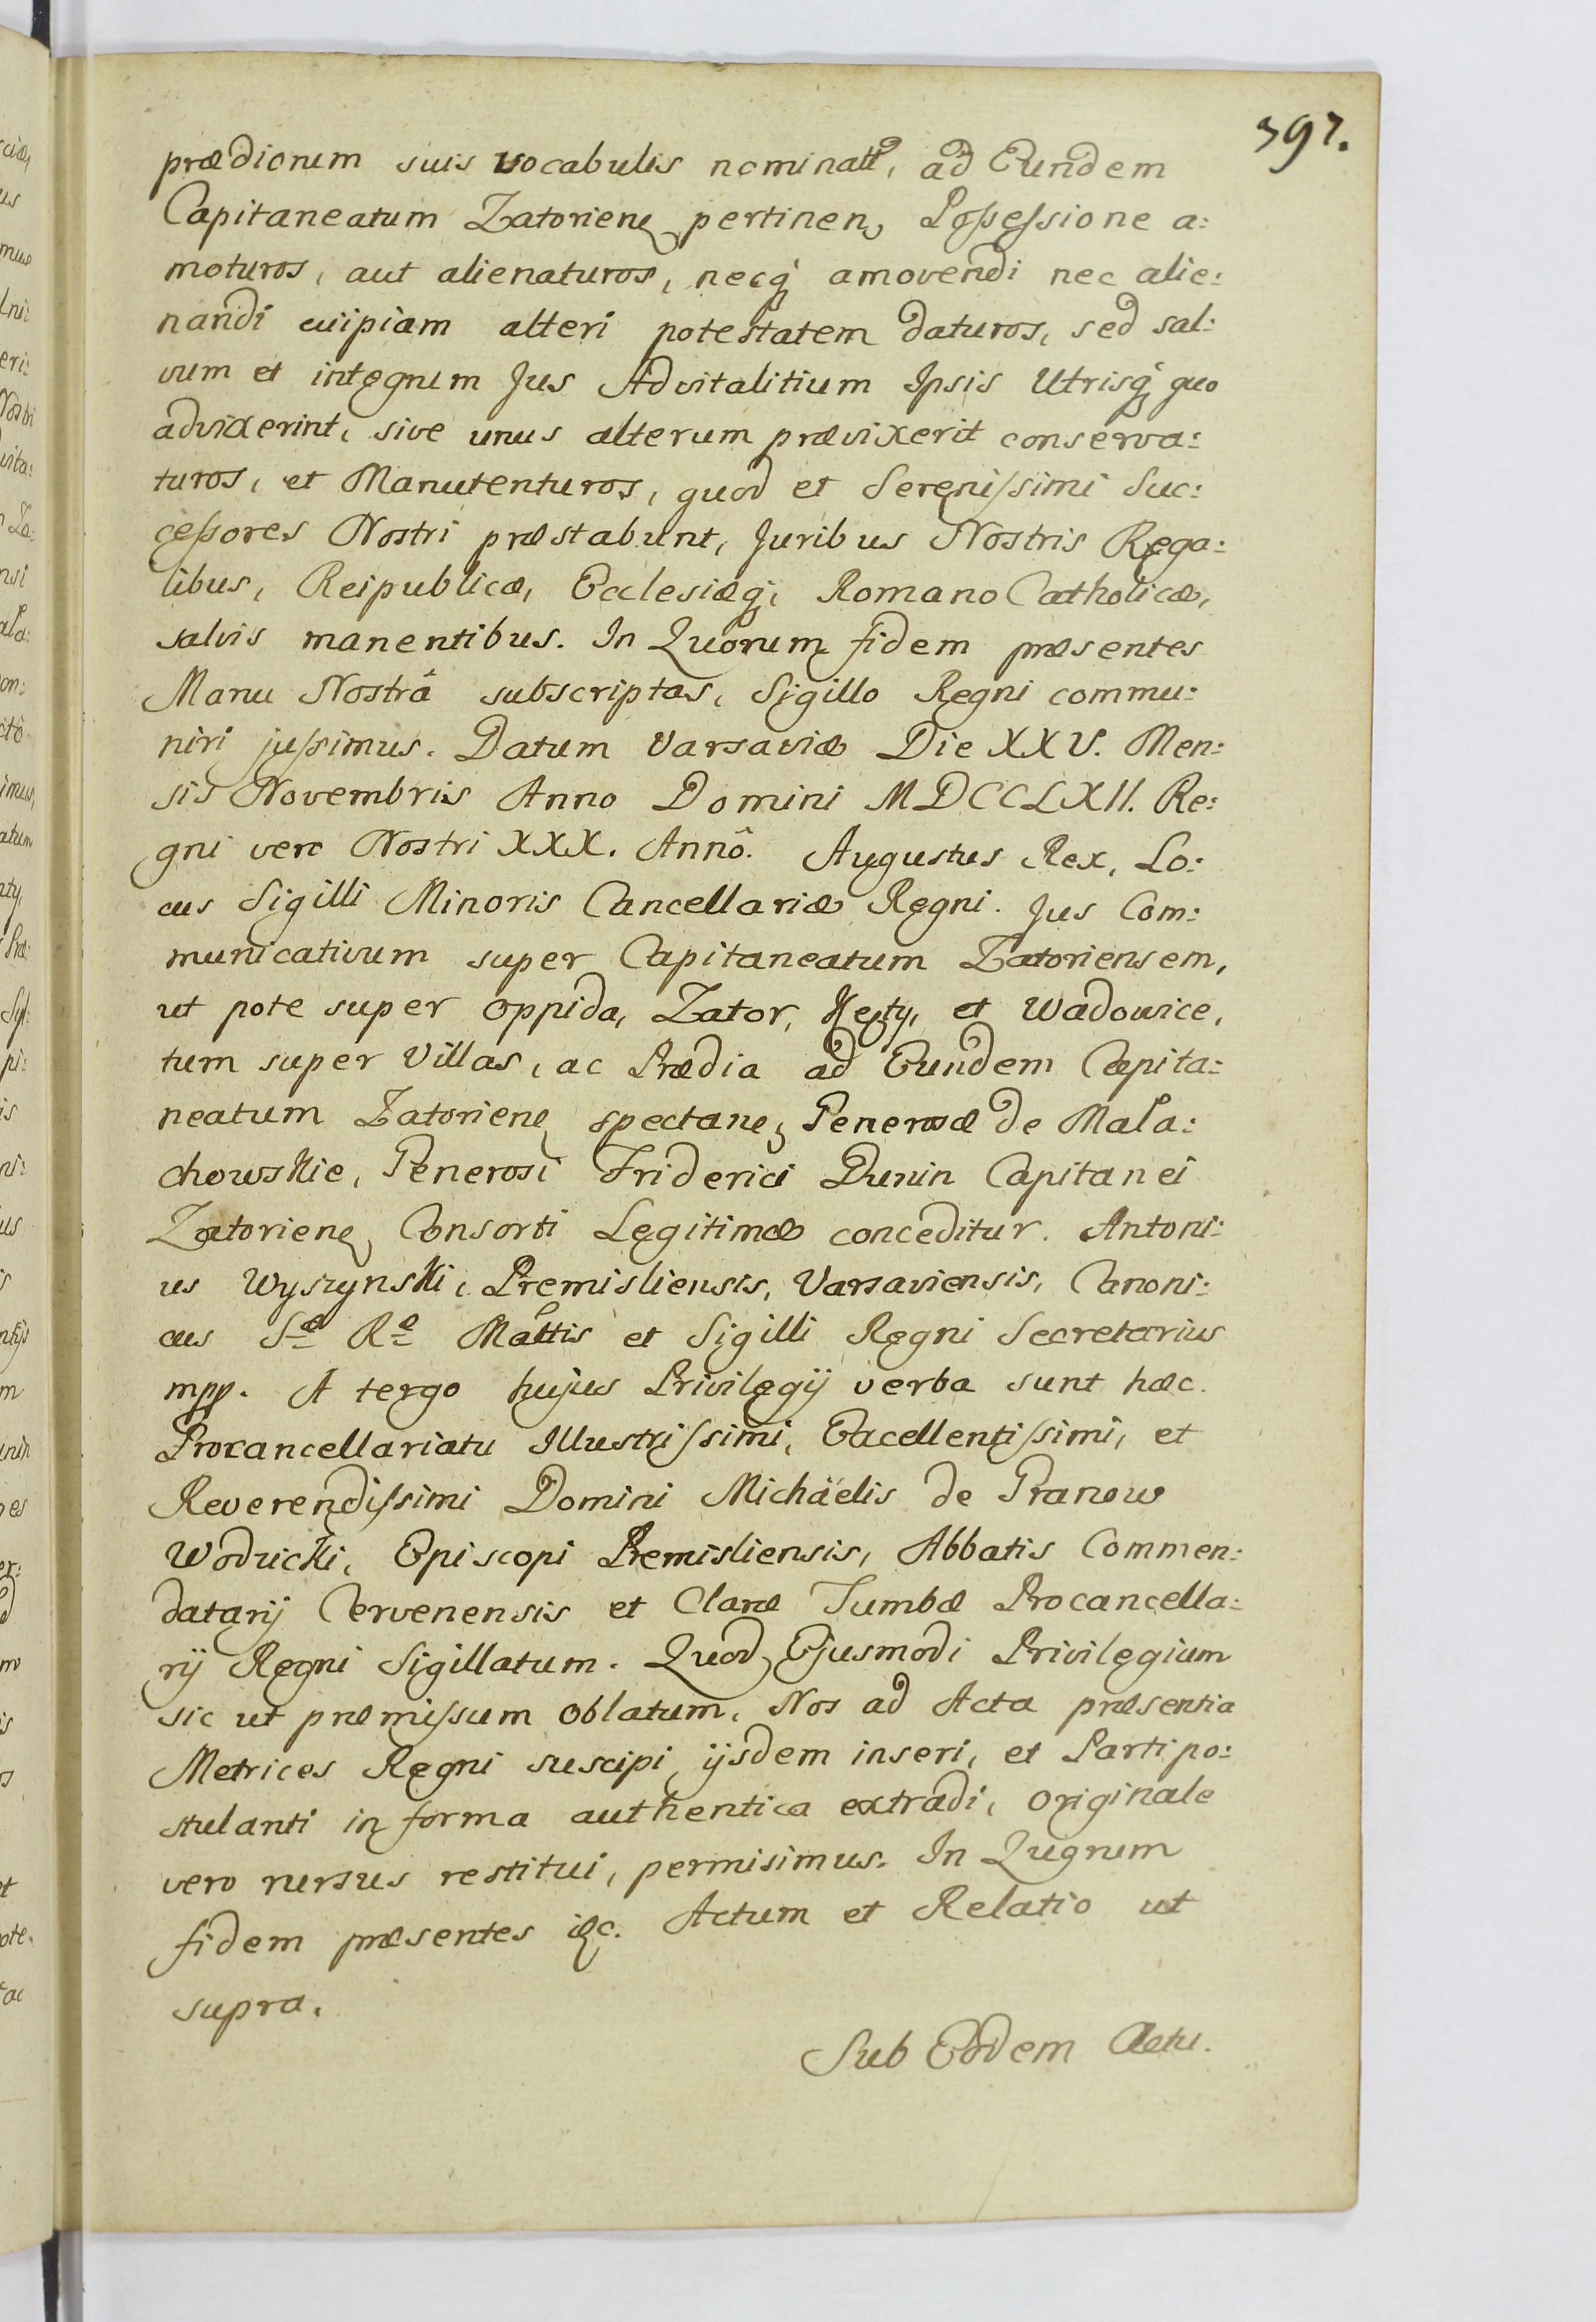 397.
prædiorum suis vocabulis nominatt, ad Eundem
Capitaneatum Zatorien, pertinen, Possessione a:
moturos, aut alienaturos, necq amovendi nec alie:
nandi cuipiam alteri potestatem daturos, sed sal:
vum et integrum Jus Advitalitium Ipsis Utrisq quo
advixerint, sive unus alterum prævixerit conserva:
turos, et Manutenturos, quod et Serenissimi Suc:
cessores Nostri præstabunt, Juribus Nostris Rega:
libus, Reipublicæ, Ecclesiæq, Romano Catholicæ,
salvis manentibus. In Quorum fidem præsentes
Manu Nostrâ subscriptas, Sigillo Regni commu:
niri jussimus. Datum Varsaviæ Die XXV. Men:
sis Novembris Anno Domini MDCCLXII. Re:
gni vero Nostri XXX. Annô. Augustus Rex, Lo:
cus Sigilli Minoris Cancellariæ Regni. Jus Com:
municativum super Capitaneatum Zatoriensem,
ut pote super oppida, Zator, Kęty, et Wadowice,
tum super Villas, ac Prædia ad Eundem Capita:
neatum Zatorien, spectan, Generosæ de Mala:
chowskie, Generosi Friderici Dunin Capitanei
Zatorien, Consorti Legitimæ conceditur. Antoni:
us Wyszynski, Premisliensis, Varsaviensis, Canoni:
cus Sæ Ræ Mattis et Sigilli Regni Secretarius
mpp. A tergo hujus Privilegij verba sunt hæc.
Procancellariatu Illustrissimi, Excellentissimi, et
Reverendissimi Domini Michäelis de Granow
Wodzicki, Episcopi Premisliensis, Abbatis Commen:
datarij Cervenensis et Claræ Tumbæ Procancella:
rij Regni Sigillatum. Quod Ejusmodi Privilegium
sic ut præmissum oblatum, Nos ad Acta præsentia
Metrices Regni suscipi, ijsdem inseri, et Parti po:
stulanti in forma authentica extradi, originale
vero rursus restitui, permisimus. In Quorum
fidem præsentes &c. Actum et Relatio ut
supra.
Sub Eodem Actu.